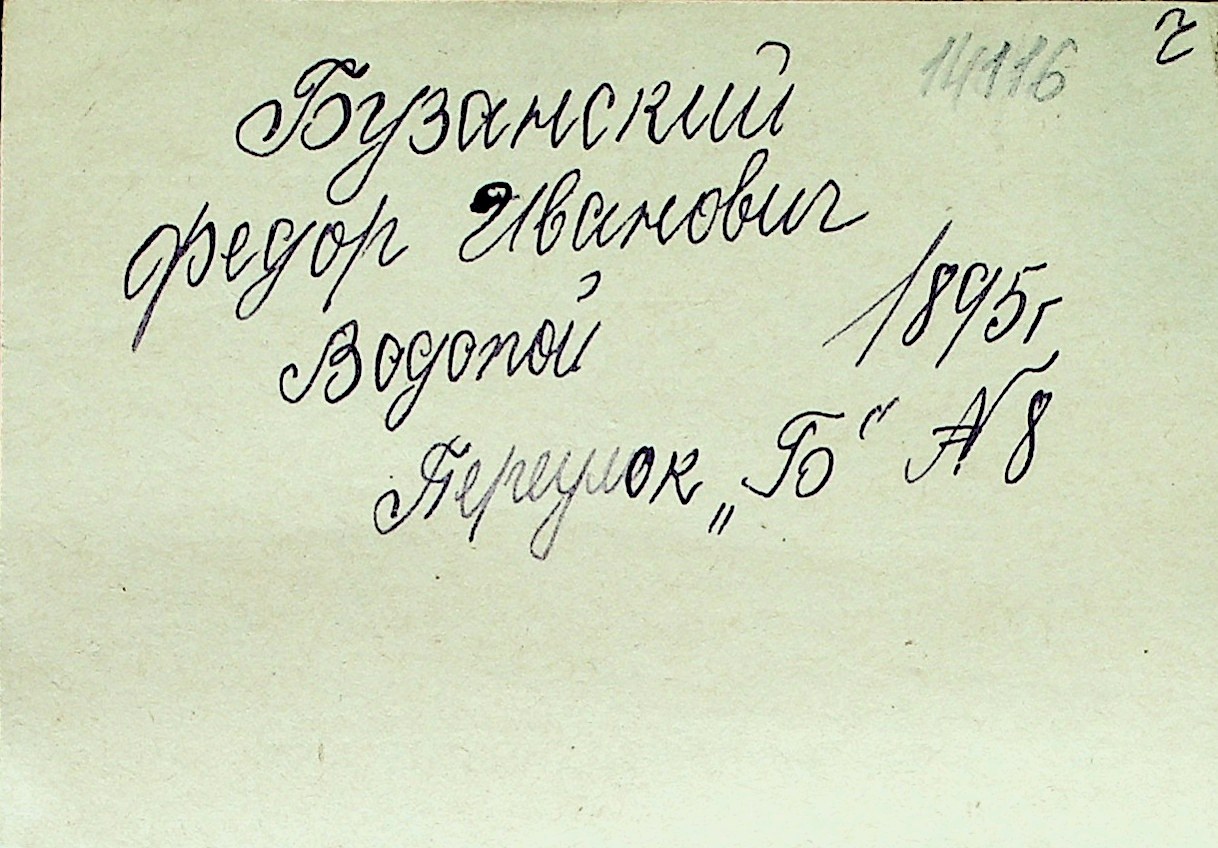 14116 г
Бузанский
Федор Иванович
1895г
Водопой
Переулок „Б“ № 8